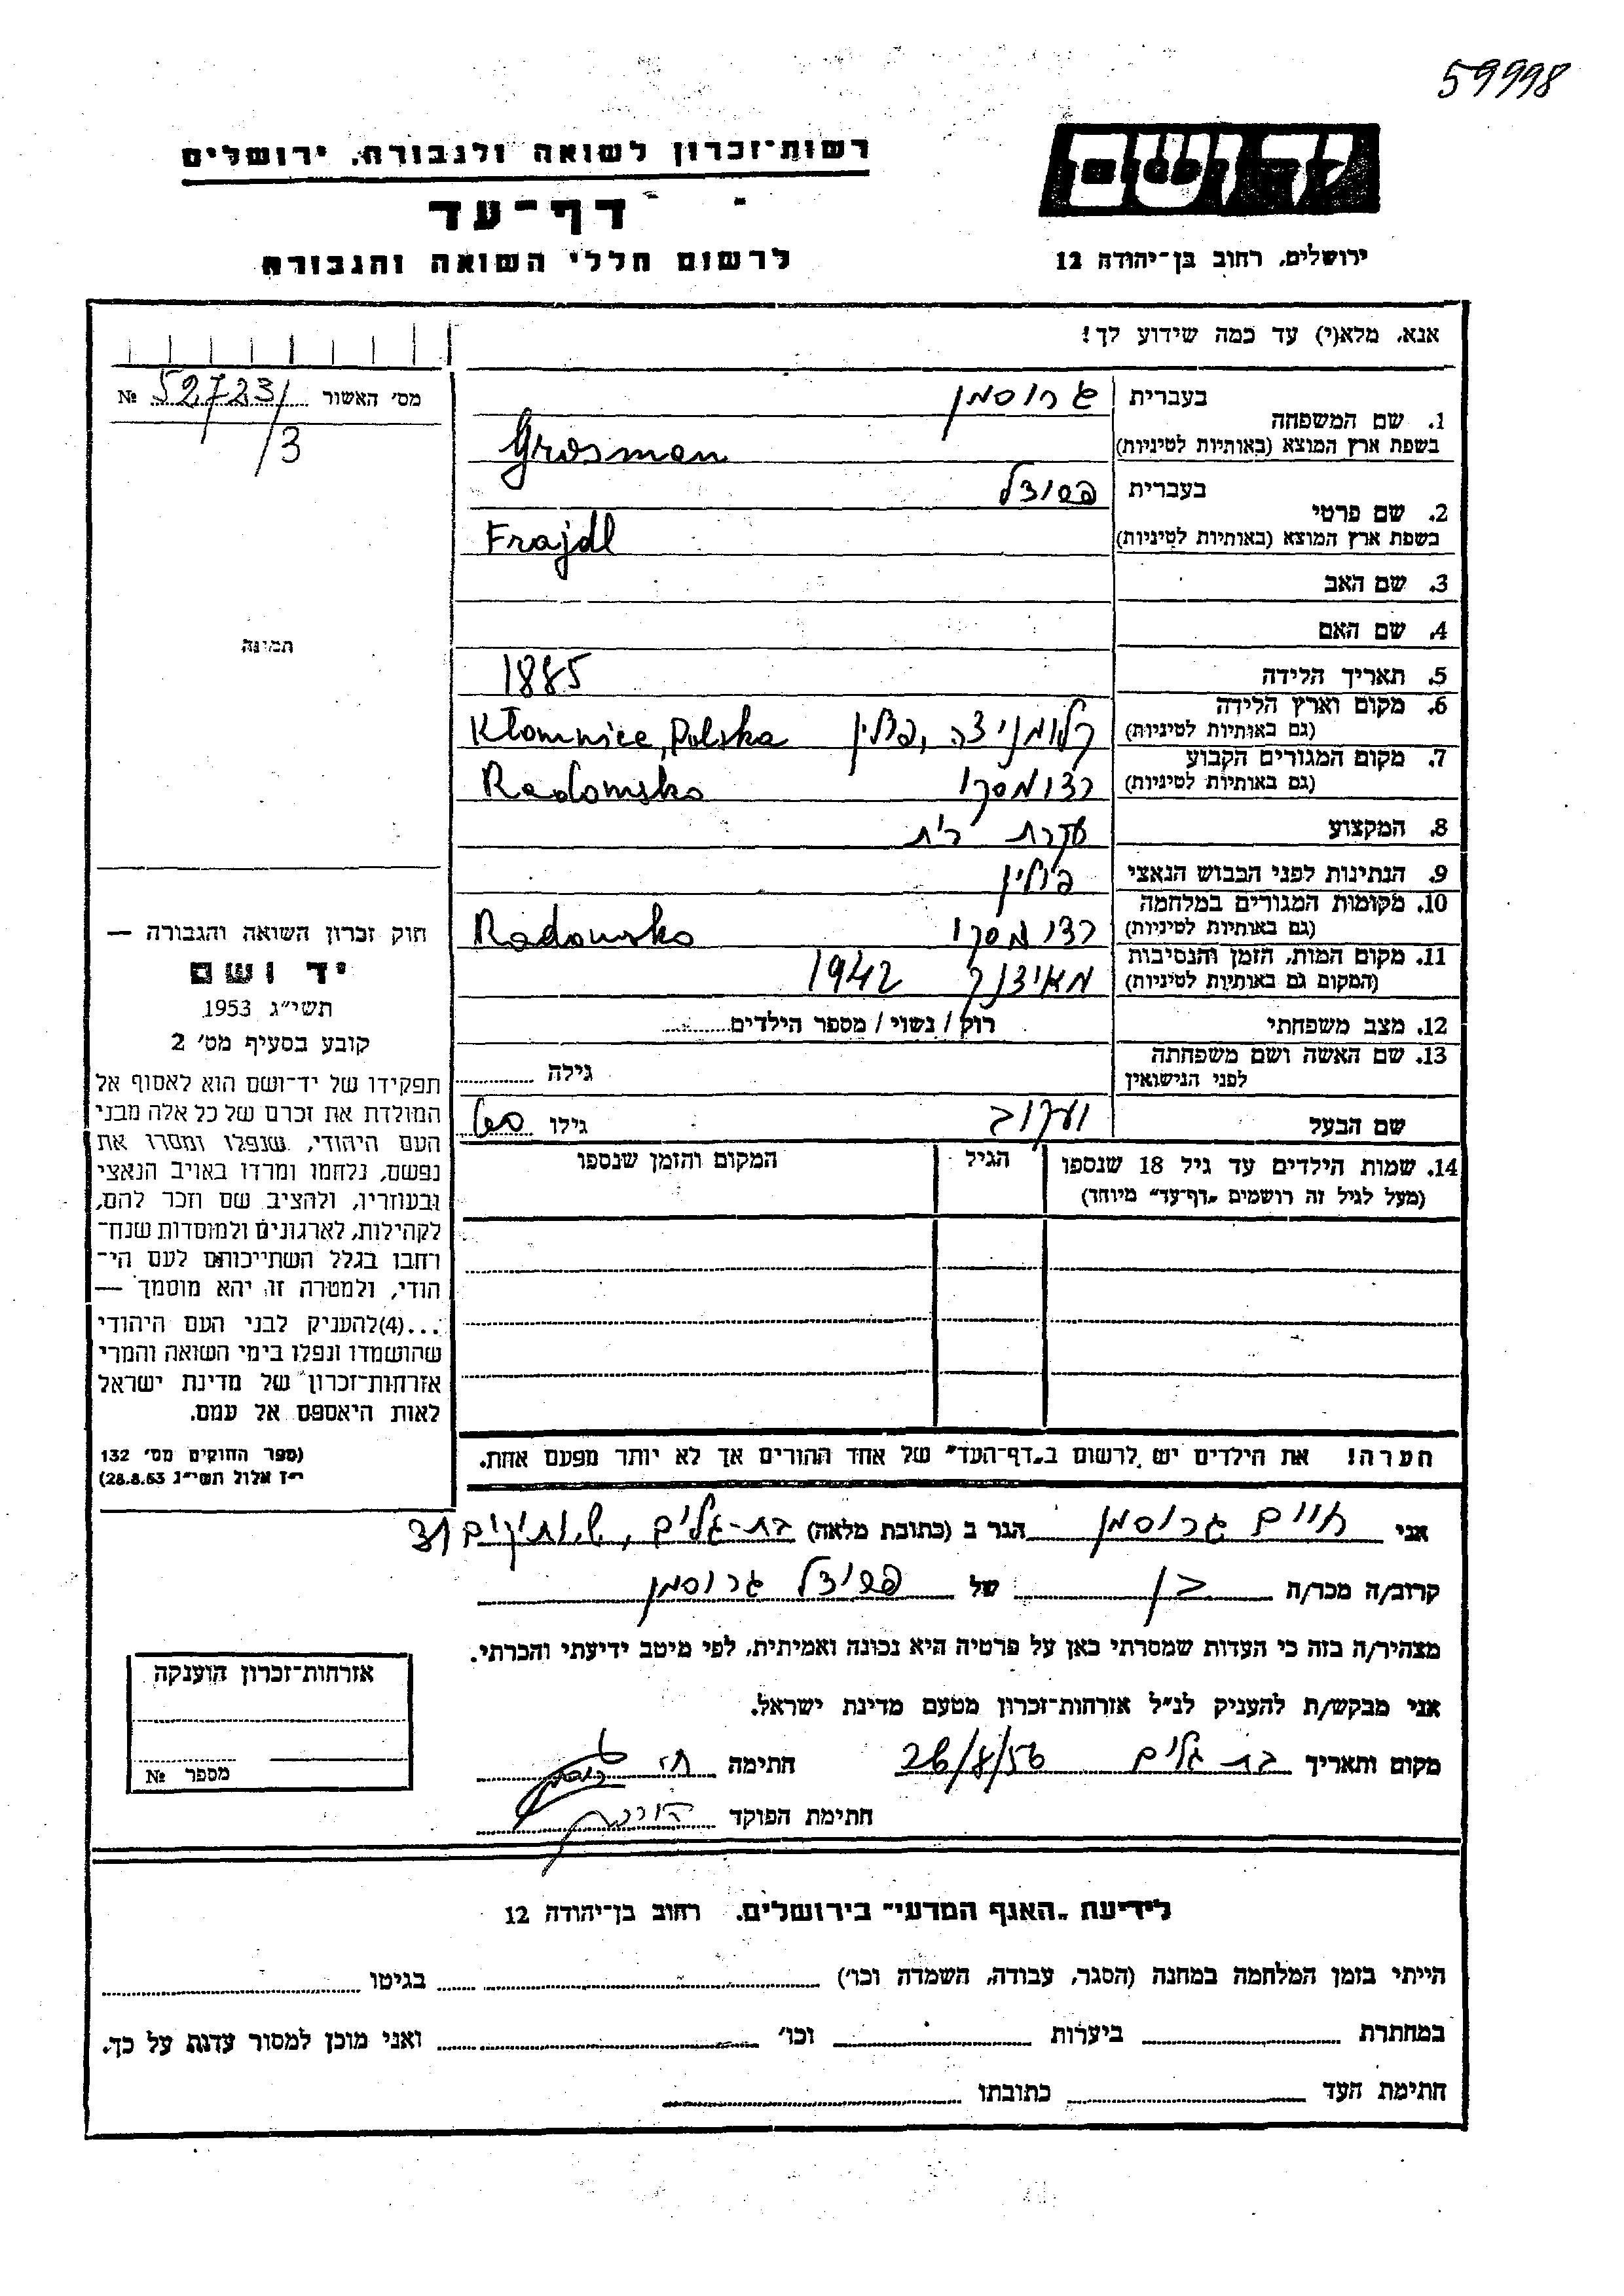 59998
יד ושם
רשות־זכרון לשואה ולגבורה, ירושלים
דף־עד
לרשום חללי השואה והגבורה
ירושלים, רחוב בן־יהודה 12
אנא, מלא(י) עד כמה שידוע לך!
מס׳ האשור 52723/ №
/3
1. שם המשפחה
בעברית גרוסמן
בשפת ארץ המוצא (באותיות לטיניות) Grosman
2. שם פרטי
בעברית
בשפת ארץ המוצא (באותיות לטיניות) Frajdl
3. שם האב
4. שם האם
תמונה
5. תאריך הלידה 1885
6. מקום וארץ הלידה
(גם באותיות לטיניות) קלומניצה, פולין Kłomnice, Polska
7. מקום המגורים הקבוע
(גם באותיות לטיניות) רדומסקו Radomsko
8. המקצוע עקרת בית
9. הנתינות לפני הכבוש הנאצי פולין
10. מקומות המגורים במלחמה
(גם באותיות לטיניות) רדומסקו Radomsko
11. מקום המות, הזמן והנסיבות
(המקום גם באותיות לטיניות) מאידנק 1942
12. מצב משפחתי רוק / נשוי / מספר הילדים
13. שם האשה ושם משפחתה
לפני הנישואין גילה
שם הבעל יעקוב גילו
14. שמות הילדים עד גיל 18 שנספו
(מעל לגיל זה רושמים „דף־עד” מיוחד)
הגיל
המקום והזמן שנספו
חוק זכרון השואה והגבורה —
יד ושם
תשי״ג 1953
קובע בסעיף מס׳ 2
תפקידו של יד־ושם הוא לאסוף אל
המולדת את זכרם של כל אלה מבני
העם היהודי, שנפלו ומסרו את
נפשם, נלחמו ומרדו באויב הנאצי
ובעוזריו, ולהציב שם וזכר להם,
לקהילות, לארגונים ולמוסדות שנח־
רחבו בגלל השתייכותם לעם הי־
הודי, ולמטרה זו יהא מוסמך —
...(4) להעניק לבני העם היהודי
שהושמדו ונפלו בימי השואה והמרי
אזרחות־זכרון של מדינת ישראל
לאות היאספם אל עמם.
(ספר החוקים מס׳ 132
י״ז אלול תשי״ג 28.8.53)
הערה! את הילדים יש לרשום ב„דף־העד” של אחד ההורים אך לא יותר מפעם אחת.
אני חיים גרוסמן הגר ב (כתובת מלאה) בת-גלים,
קרוב/ה מכר/ה בן של גרוסמן
מצהיר/ה בזה כי העדות שמסרתי כאן על פרטיה היא נכונה ואמיתית, לפי מיטב ידיעתי והכרתי.
אני מבקש/ת להעניק לנ״ל אזרחות־זכרון מטעם מדינת ישראל.
מקום ותאריך בת גלים 26/8/56 חתימה
חתימת הפוקד
אזרחות־זכרון הוענקה
מספר №
לידיעת „האגף המדעי” בירושלים, רחוב בן־יהודה 12
הייתי בזמן המלחמה במחנה (הסגר, עבודה, השמדה וכו׳) בגיטו
במחתרת ביערות וכו׳ ואני מוכן למסור עדות על כך.
חתימת העד כתובתו